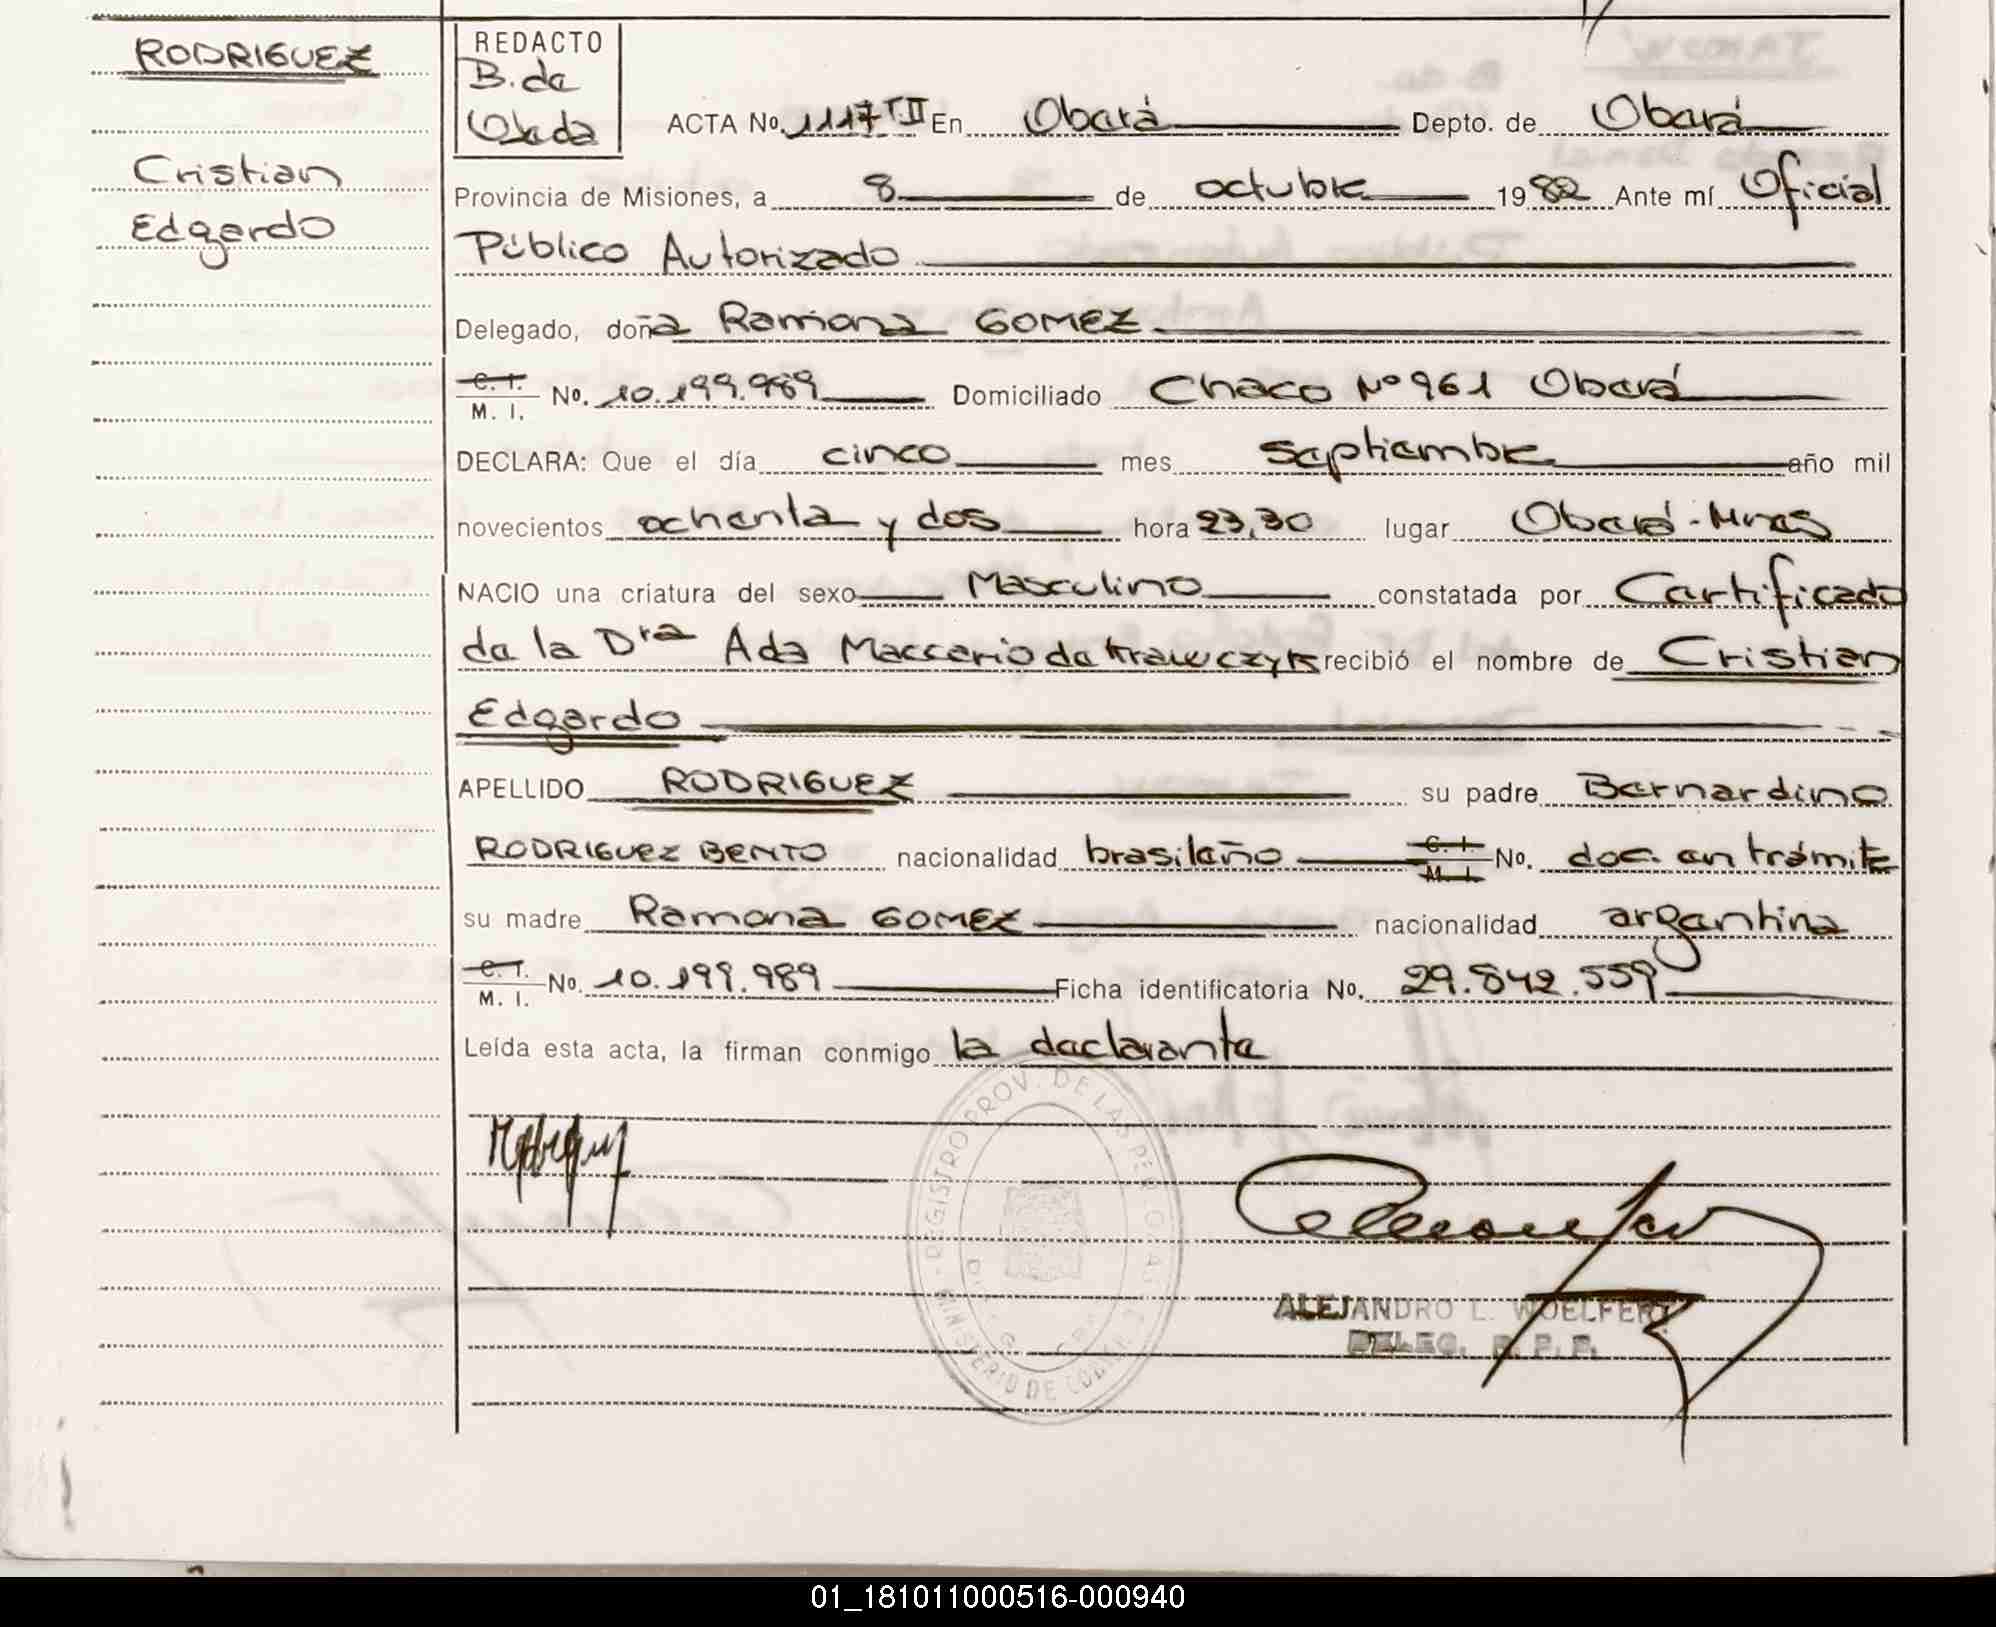 RODRIGUEZ
Cristian
Edgardo
REDACTO
B. de
Ojeda
ACTA No. 1117 T II En Oberá Depto. de Oberá
Provincia de Misiones, a 8 de octubre 1982 Ante mí Oficial
Público Autorizado
Delegado, doña Ramona GOMEZ
C. I.
M. I. No. 10.199.989 Domiciliado Chaco Nº 961 Oberá
DECLARA: Que el día cinco mes septiembre año mil
novecientos ochenta y dos hora 23,30 lugar Oberá - Mnes
NACIO una criatura del sexo Masculino constatada por Certificado
de la Dra Ada Maccerio de Krawczyk recibió el nombre de Cristian
Edgardo
APELLIDO RODRIGUEZ su padre Bernardino
RODRIGUEZ BENTO nacionalidad brasileño C. I.
M. I. No. doc. en trámite
su madre Ramona GOMEZ nacionalidad argentina
C. I.
M. I. No. 10.199.989 Ficha identificatoria No. 29.842.559
Leída esta acta, la firman conmigo la declarante
REGISTRO PROV. DE LAS PERSONAS
MINISTERIO DE GOBIER
ALEJANDRO L. WOELFERT
DELEG. R. P. P.
01_181011000516-000940